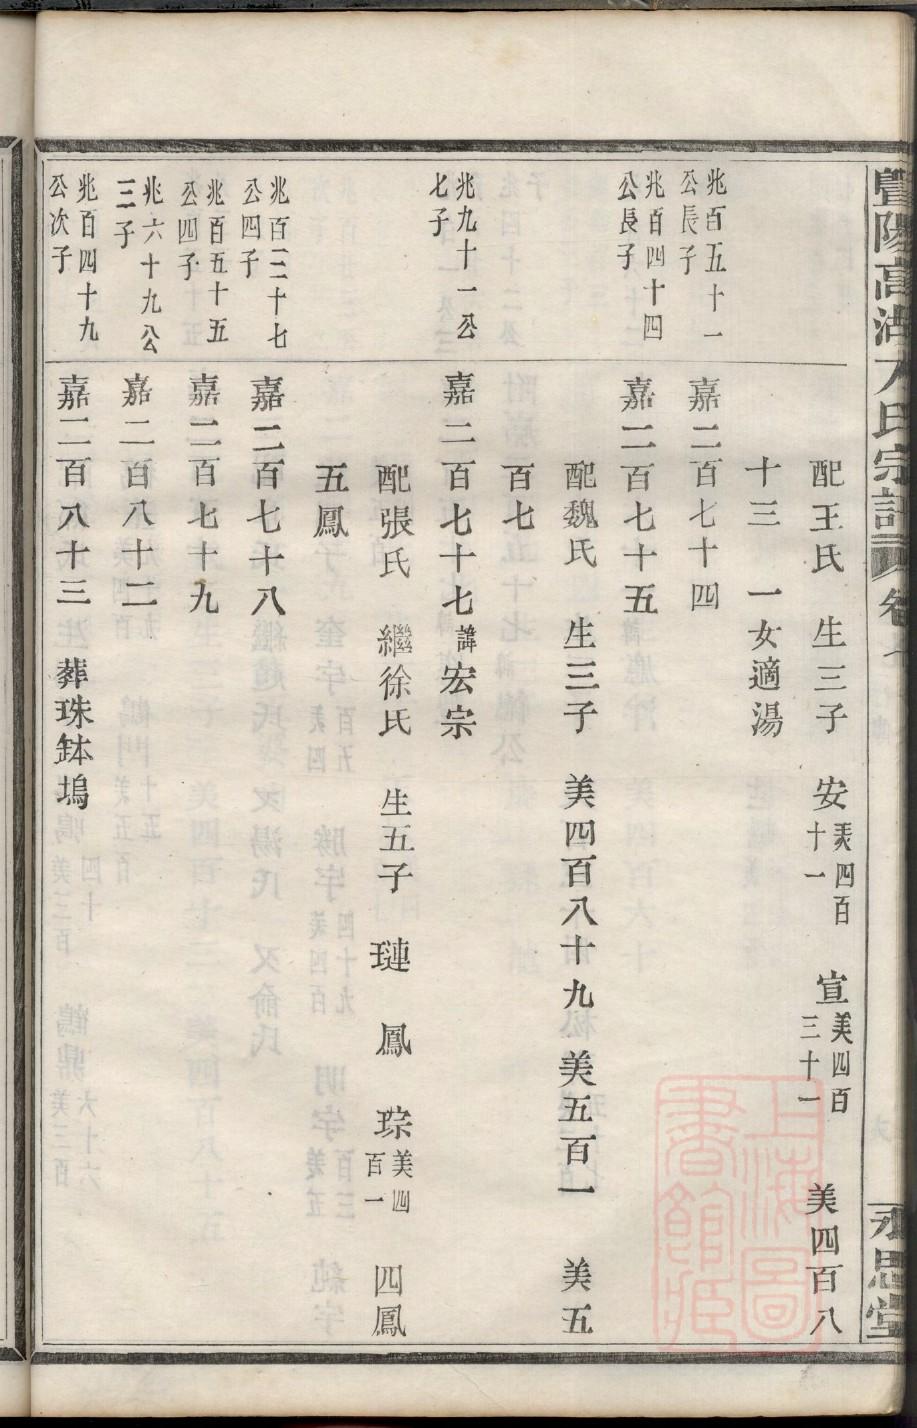 暨陽高湖
氏宗譜
卷
永思堂
配王氏 生三子 安美四百十一 宣美四百三十一 美四百八
十三 一女適湯
兆百五十一公長子 嘉二百七十四
兆百四十四公長子 嘉二百七十五
配魏氏 生三子 美四百八十九 美五百一 美五
百七
兆九十一公七子 嘉二百七十七諱宏宗
配張氏 繼徐氏 生五子 璉 鳳 琮美四百一 四鳳
五鳳
兆百三十七公四子 嘉二百七十八
兆百五十五公四子 嘉二百七十九
兆六十九公三子 嘉二百八十二
兆百四十九公次子 嘉二百八十三 葬珠鉢塢
上海圖書館藏